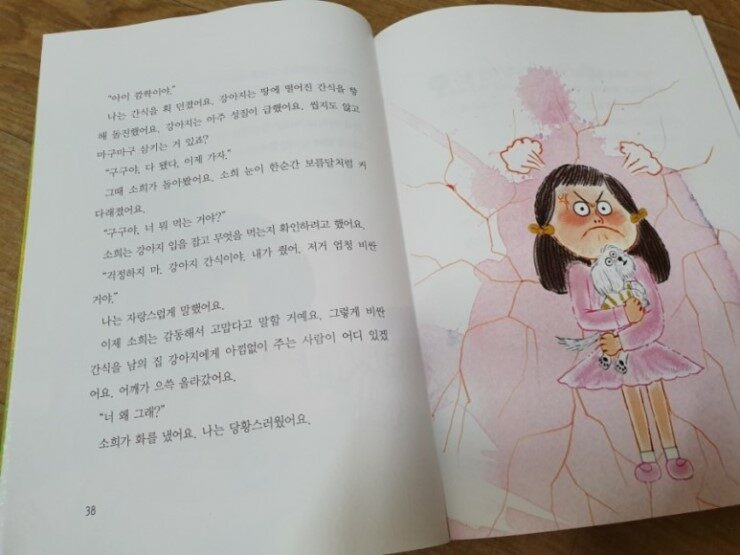 "아이 깜짝이야."
나는 간식을 휙 던졌어요. 강아지는 땅에 떨어진 간식을 향
해 돌진했어요. 강아지는 아주 성질이 급했어요. 씹지도 않고
마구마구 삼키는 거 있죠?
"구구야, 다 됐다. 이제 가자."
그때 소희가 돌아봤어요. 소희 눈이 한순간 보름달처럼 커
다래졌어요.
"구구야, 너 뭐 먹는 거야?"
소희는 강아지 입을 잡고 무엇을 먹는지 확인하려고 했어요.
"걱정하지 마. 강아지 간식이야. 내가 줬어. 저거 엄청 비싼
거야."
나는 자랑스럽게 말했어요.
이제 소희는 감동해서 고맙다고 말할 거예요. 그렇게 비싼
간식을 남의 집 강아지에게 아낌없이 주는 사람이 어디 있겠
어요. 어깨가 으쓱 올라갔어요.
"너 왜 그래?"
소희가 화를 냈어요. 나는 당황스러웠어요.
38